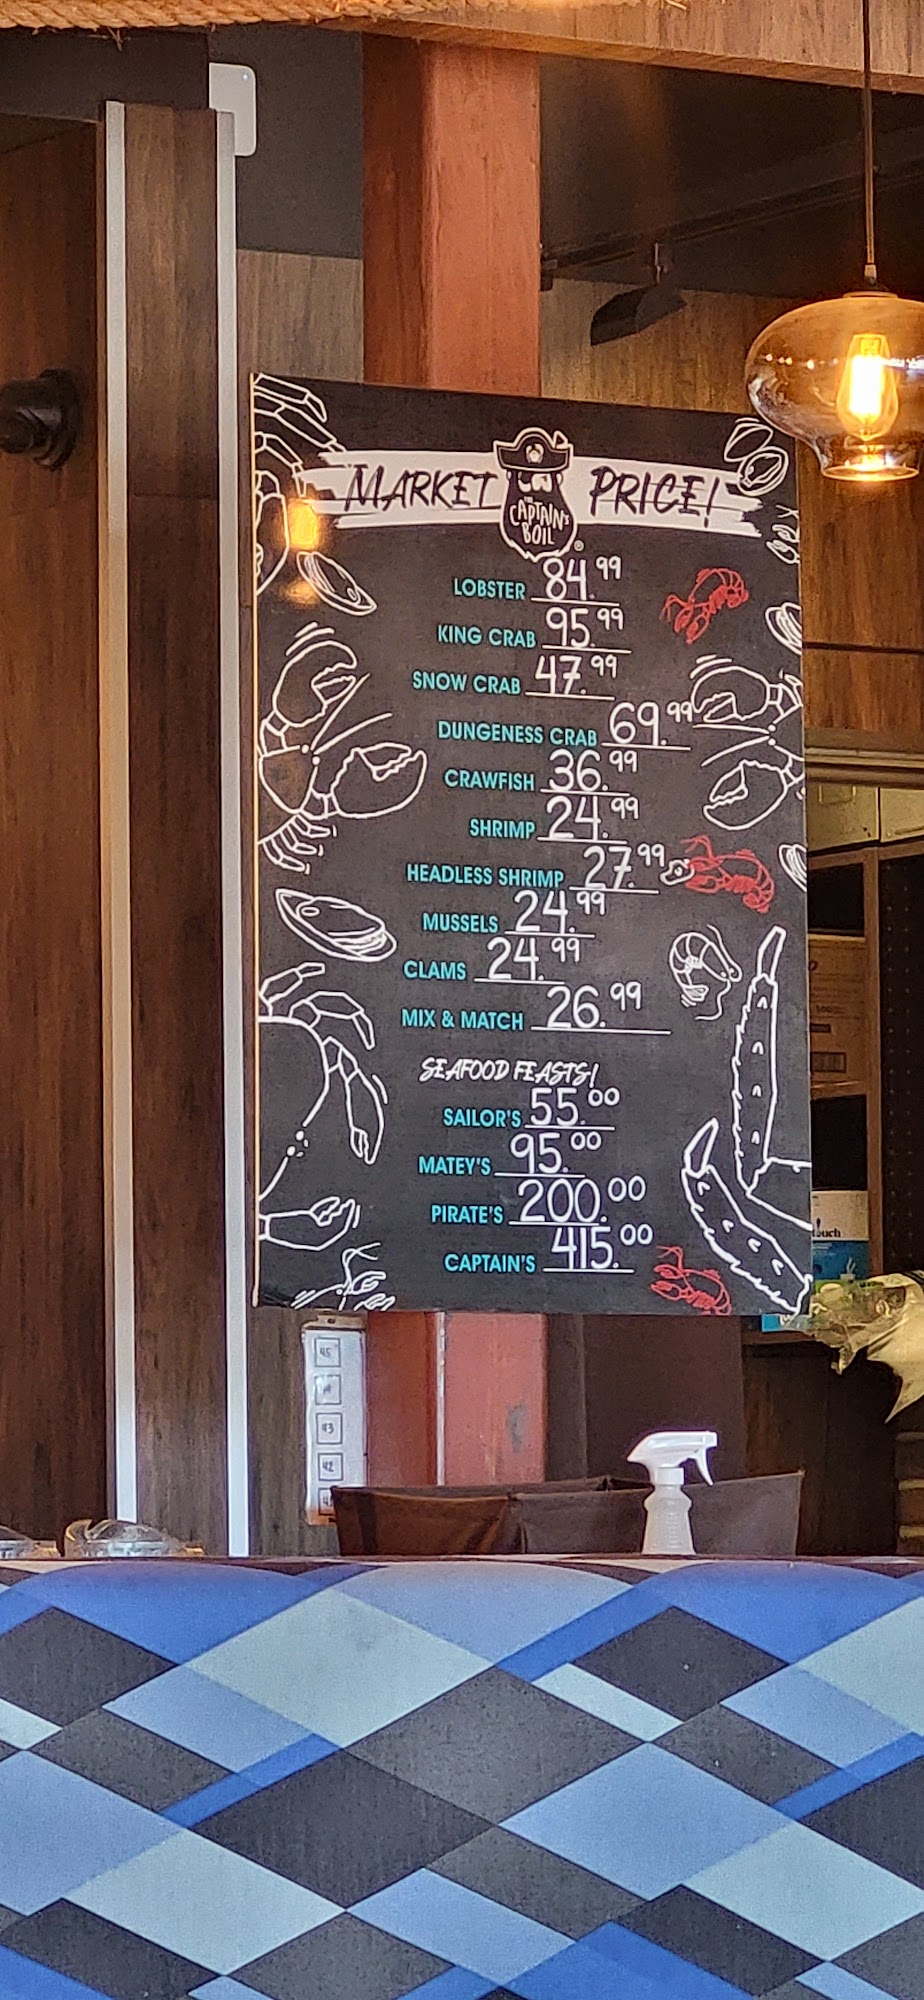 MARKET PRICE!
THE
CAPTAIN'S
BOIL
®
LOBSTER 84.99
KING CRAB 95.99
SNOW CRAB 47.99
DUNGENESS CRAB 69.99
CRAWFISH 36.99
SHRIMP 24.99
HEADLESS SHRIMP 27.99
MUSSELS 24.99
CLAMS 24.99
MIX & MATCH 26.99
SEAFOOD FEASTS!
SAILOR'S 55.00
MATEY'S 95.00
PIRATE'S 200.00
CAPTAIN'S 415.00
45
43
42